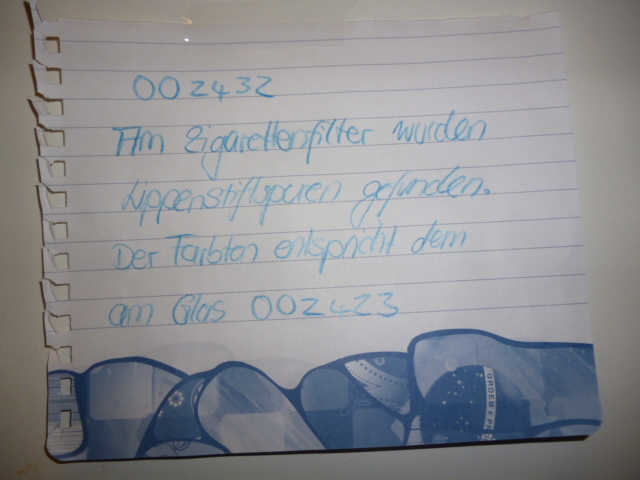 002432
Am Zigarettenfilter wurden
Lippenstiftspuren gefunden.
Der Farbton entspricht dem
am Glas 002423
ORDEM E P